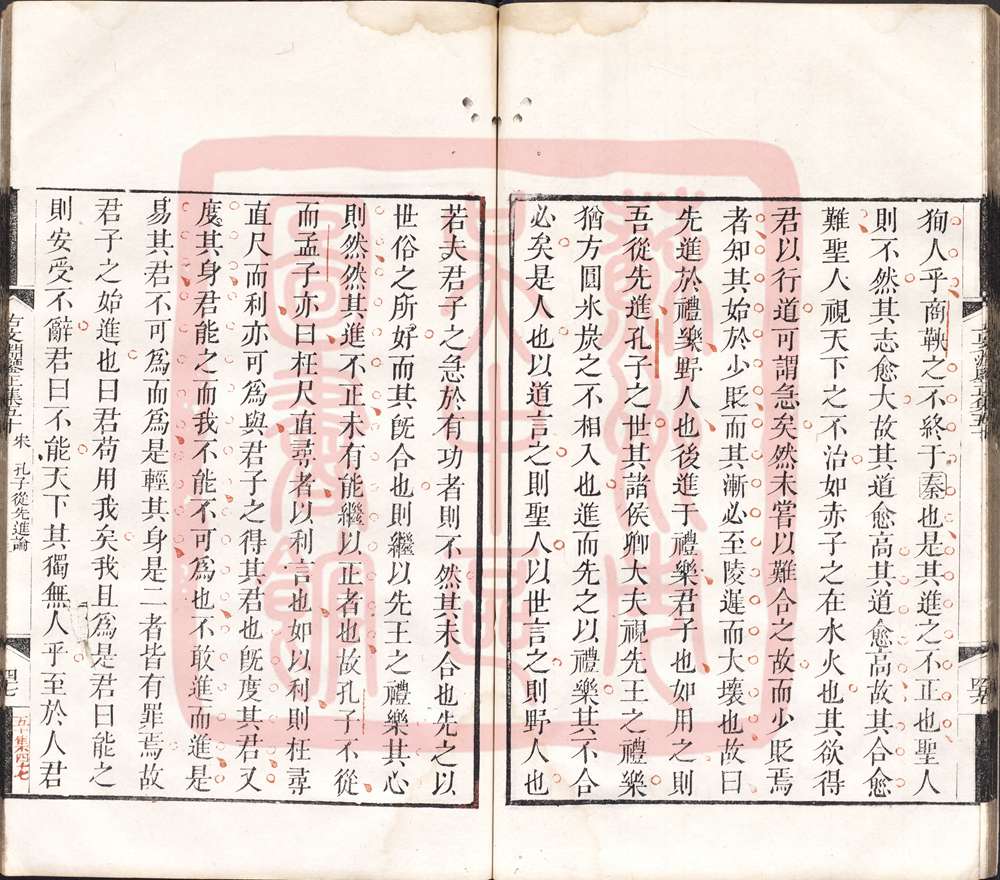 狥人乎商鞅之不終于秦也是其進之不正也聖人
則不然其志愈大故其道愈高其道愈高故其合愈
難聖人視天下之不治如赤子之在水火也其欲得
君以行道可謂急矣然未嘗以難合之故而少貶焉
者知其始於少貶而其漸必至陵遲而大壞也故曰
先進於禮樂野人也後進于禮樂君子也如用之則
吾從先進孔子之世其諸侯卿大夫視先王之禮樂
猶方圓氷炭之不相入也進而先之以禮樂其不合
必矣是人也以道言之則聖人以世言之則野人也
若夫君子之急於有功者則不然其未合也先之以
世俗之所好而其旣合也則繼以先王之禮樂其心
則然然其進不正未有能繼以正者也故孔子不從
而孟子亦曰枉尺直尋者以利言也如以利則枉尋
直尺而利亦可爲與君子之得其君也旣度其君又
度其身君能之而我不能不可爲也不敢進而進是
易其君不可爲而爲是輕其身是二者皆有罪焉故
君子之始進也曰君苟用我矣我且爲是君曰能之
則安受不辭君曰不能天下其獨無人乎至於人君
古文淵鑒正集五十 宋 孔子從先進論
四七
五十集宋四七
遼東大學圖書館